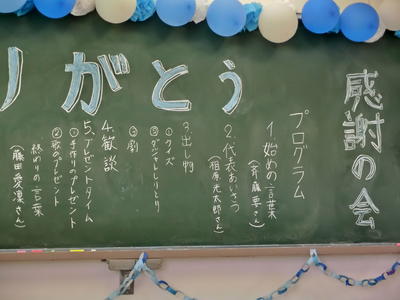 りがとう
感謝の会
プログラム
1.始めの言葉
(斉藤要さん)
2.代表あいさつ
(相原光太郎さん)
3.出し物
①クイズ
②ダジャレしりとり
③劇
4.歓談
5.プレゼントタイム
①手作りのプレゼント
②歌のプレゼント
終わりの言葉
(藤田愛凛さん)